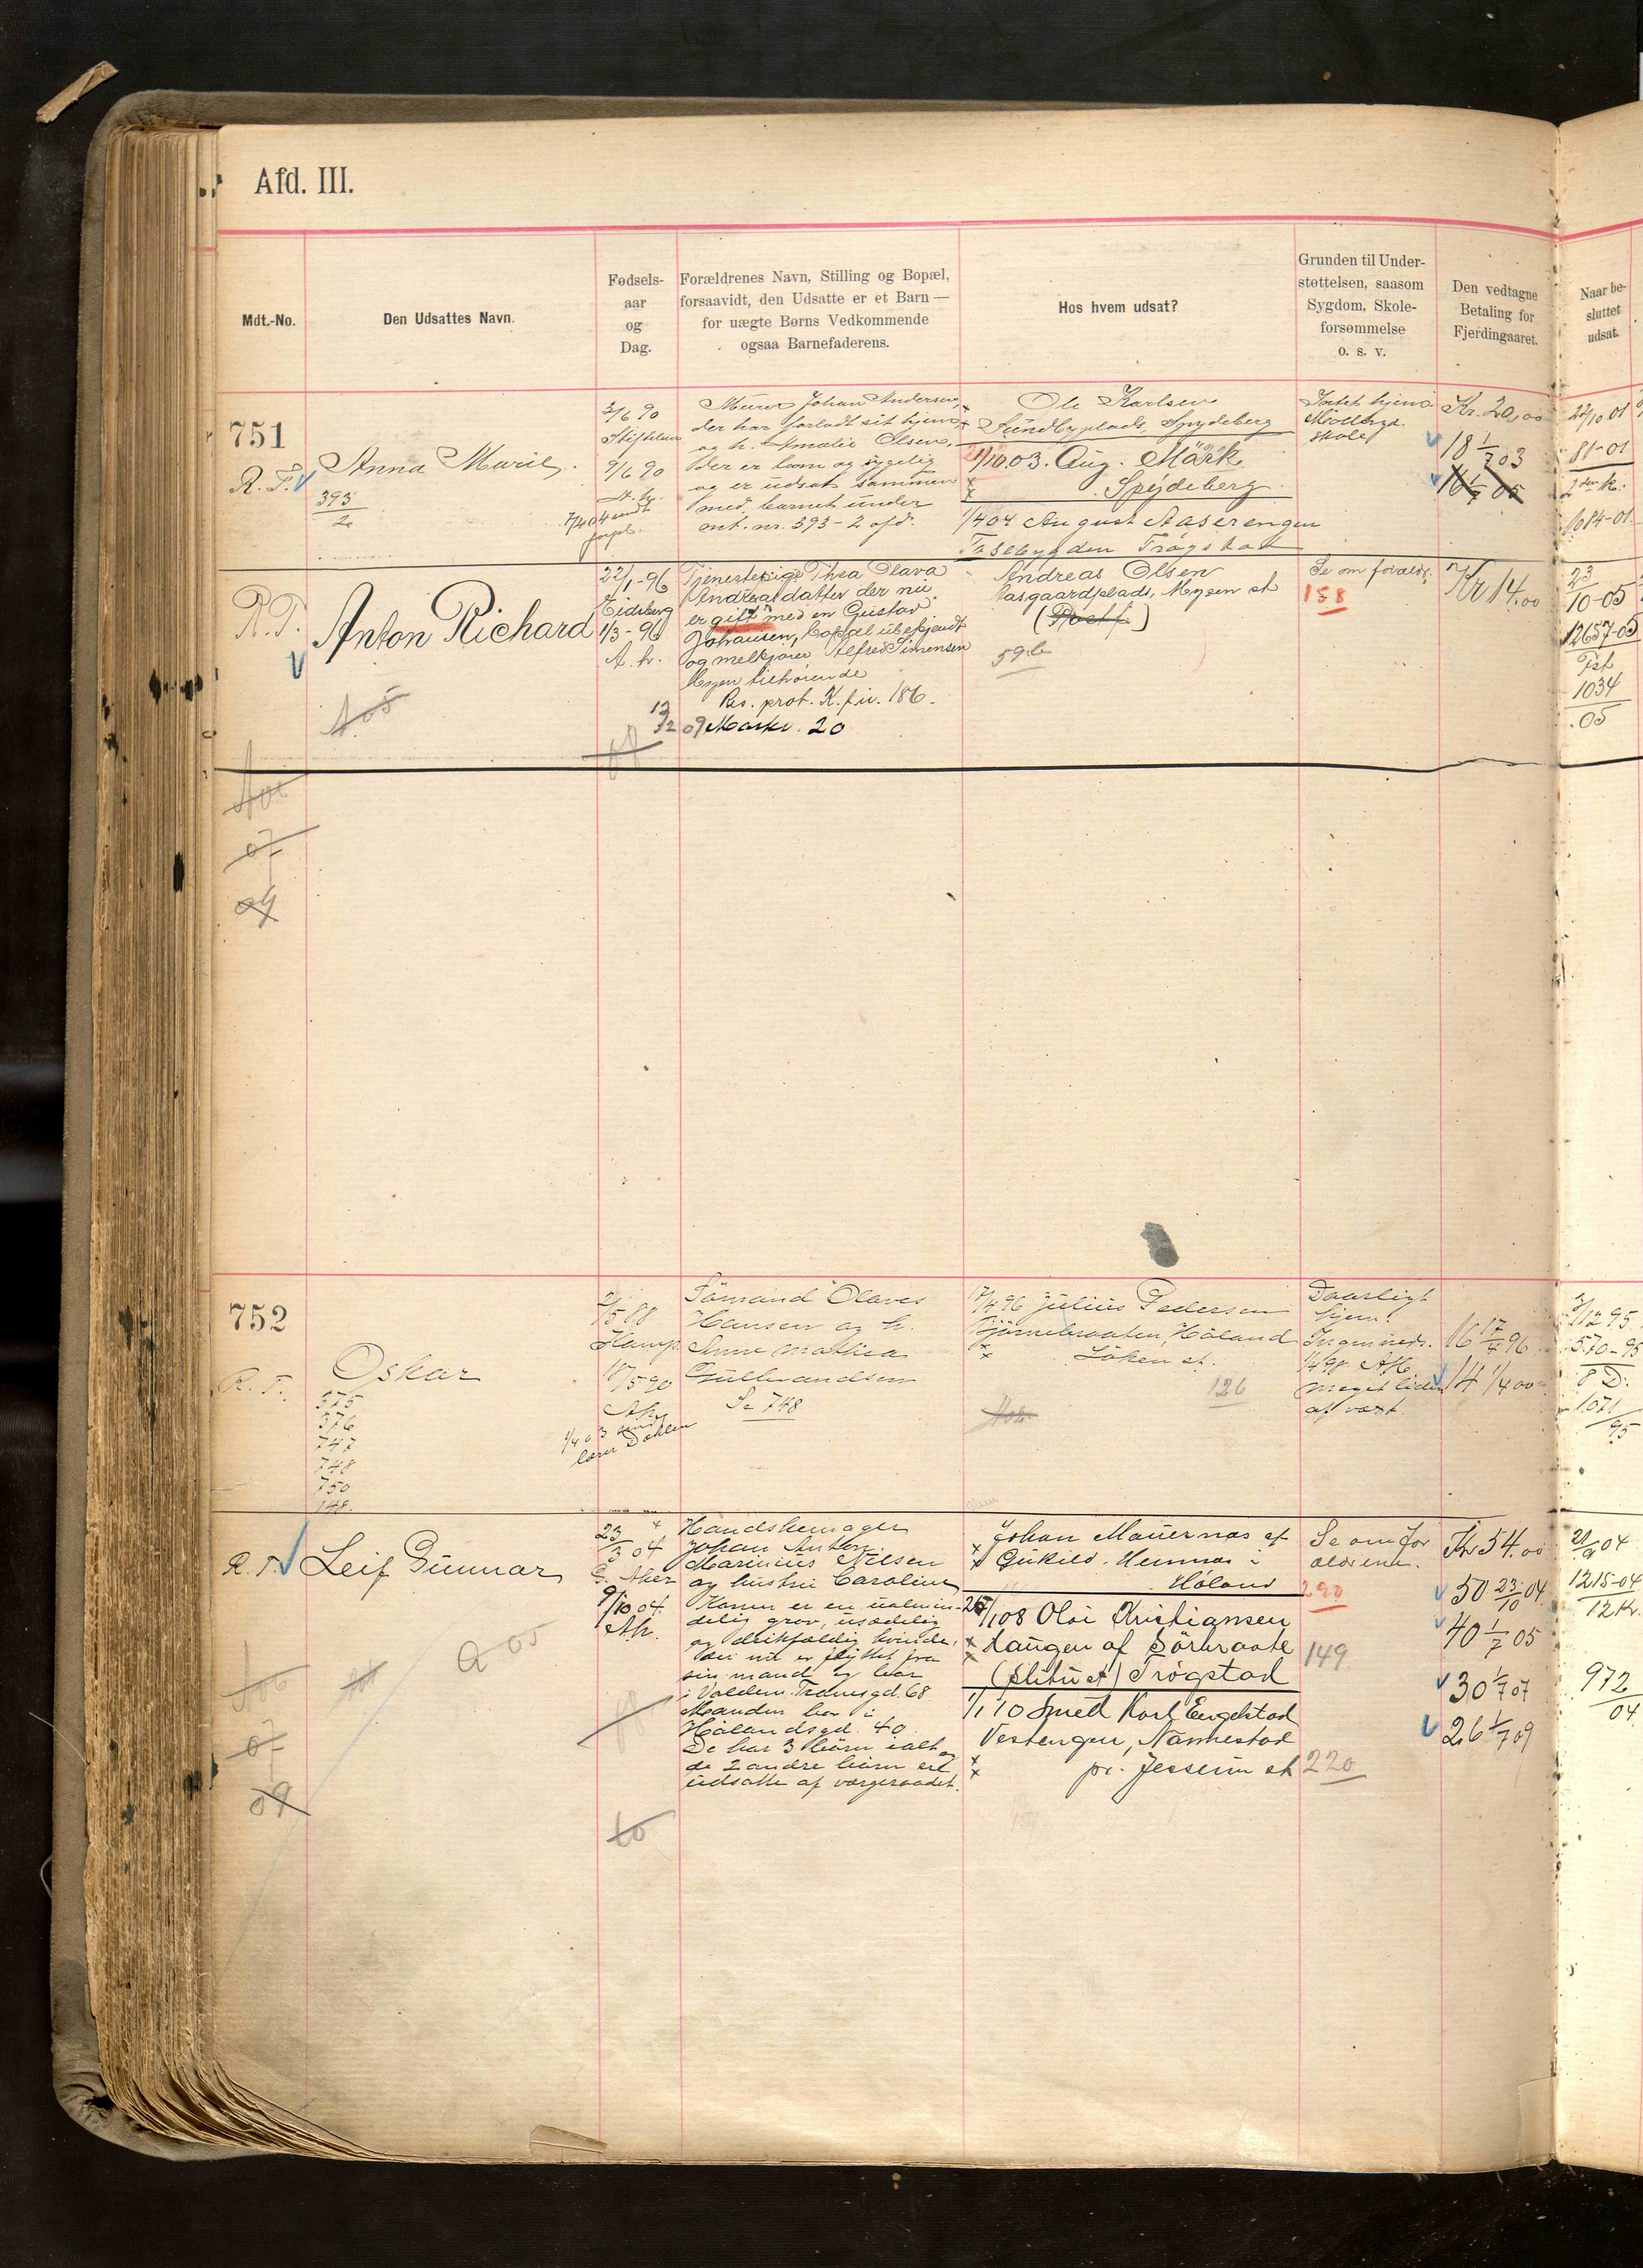 Afd. III.
Mdt.-No.
Den Udsattes Navn.
Fødsels-
aar
og
Dag.
Forældrenes Navn, Stilling og Bopæl,
forsaavidt, den Udsatte er et Barn —
for uægte Børns Vedkommende
ogsaa Barnefaderens.
Hos hvem udsat?
Grunden til Under-
støttelsen, saasom
Sygdom, Skole-
forsømmelse
o. s. v.
Den vedtagne
Betaling for
Fjerdingaaret.
Naar be-
sluttet
udsat.
751
R. T.
Anna Marie
393
2
3/6 90
9/6 90
A. h.
7/4 04 endt
Murer Johan Andersen,
der har forladt sit hjem
og h. Amalie Olsen,
der er lam og sygelig
og er udsat sammen
med barnet under
mt. nr. 393 - 2 afd.
Ole Karlsen
Sundbyplads, Spydeberg
1/10.03. Aug. Märk
Spydeberg
1/4 04 August Aaserengen
Trøgstad
Intet hjem
skole
Kr. 20,00
18 1/7 03
16 1/7 05
22/10 01
81-01
1684-01
R. T.
Anton Richard
A 05
22/1-96
Eidsberg
1/3-96
A. h.
Tjenestepige Thea Olava
Andreasdatter der nu
er gift med en Gustav
Johansen, bopæl ubekjendt
og melkjører Alfred Simensen
Mysen tilhørende
Res. prot. K. fiv. 186.
09 Mark. 20
Andreas Olsen
Aasgaardplads, Mysen st
59 b
Se om foræld.
158
Kr 14.00
23
10-05
12657-05
1034
05
07
09
752
R. T.
Oskar
375
376
747
748
750
148.
5 88
18/5 90
Ah.
1/4 03
Sømand Olaves
Hansen og h.
Anne Mathea
Gulbrandsen
Se 748
7/4 96 Julius Pedersen
Bjørnebraaten, Høland
Løken st.
126
Daarligt
hjem.
Ingen meds.
1/4 98
meget liden
af vext.
16 17/4 96
14 1/4 00
3/12 95
570-95
1071
95
R. T.
Leif Gunnar
a 05
07
09
23
3 04
G. Aker
9/10 04.
Ah.
to
Handskemager
Johan Anton
Marinius Nilsen
og hustru Caroline
Konen er en ualmin-
delig grov, usædelig
og drikfældig kvinde,
der nu er flyttet fra
sin mand og bor
i Valdem. Tranesgd. 68.
Manden bor i
Hølandsgd. 40.
De har 3 børn ialt og
de 2 andre børn ere
udsatte af vergeraadet.
Johan Mauernæs af
Gukild. Hemnes i
Høland
25/1 08 Olai Kristiansen
Haugen af Sørbraate
(slitu st) Trøgstad
1/1 10 Smed Karl Engelstad
Vestengen, Nannestad
pr. Jessheim st
Se om for
ældrene.
290
149
220
Kr 54.00
50 23/10 04
40 1/7 05
30 1/7 07
26 1/7 09
21/9 04
1215-04
12 Kr.
972
04